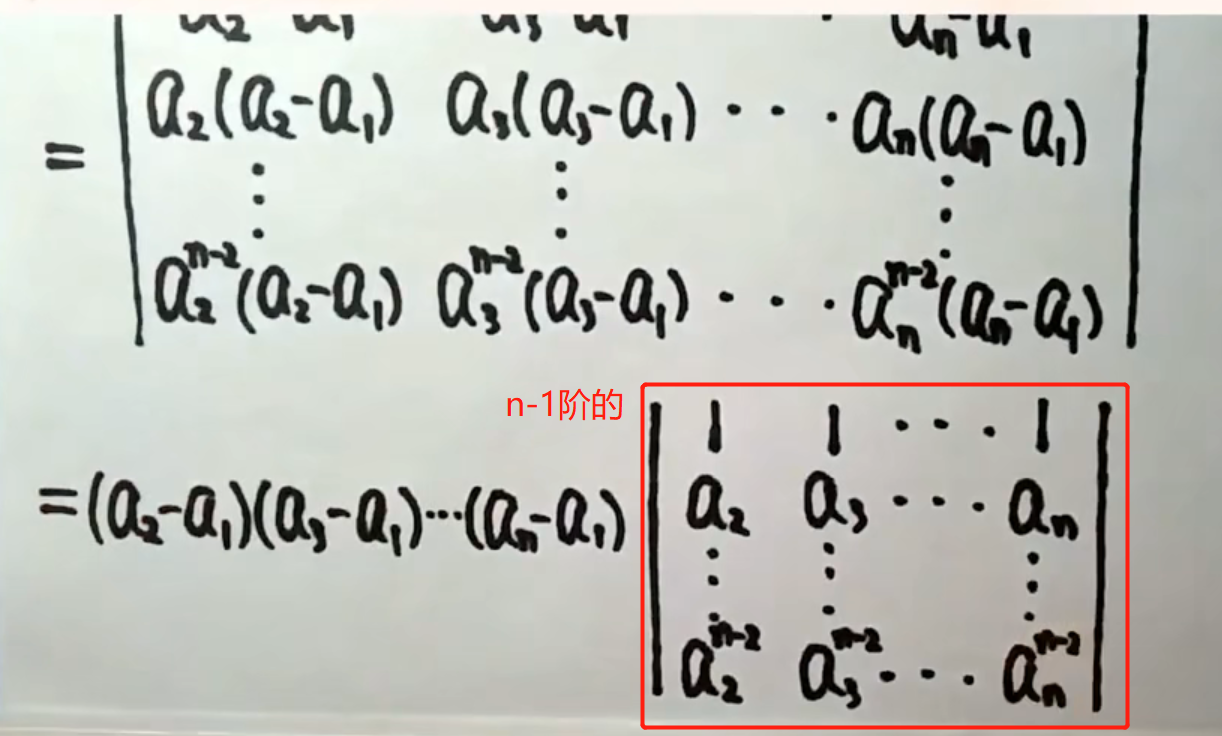 a₂-a₁ a₃-a₁ · aₙ-a₁
= | a₂(a₂-a₁) a₃(a₃-a₁) · · · aₙ(aₙ-a₁) |
⋮ ⋮ ⋮
a₂ⁿ⁻²(a₂-a₁) a₃ⁿ⁻²(a₃-a₁) · · · aₙⁿ⁻²(aₙ-a₁)
n-1阶的
| 1 1 · · · 1 |
=(a₂-a₁)(a₃-a₁)···(aₙ-a₁) | a₂ a₃ · · · aₙ |
⋮ ⋮ ⋮
a₂ⁿ⁻² a₃ⁿ⁻² · · · aₙⁿ⁻²